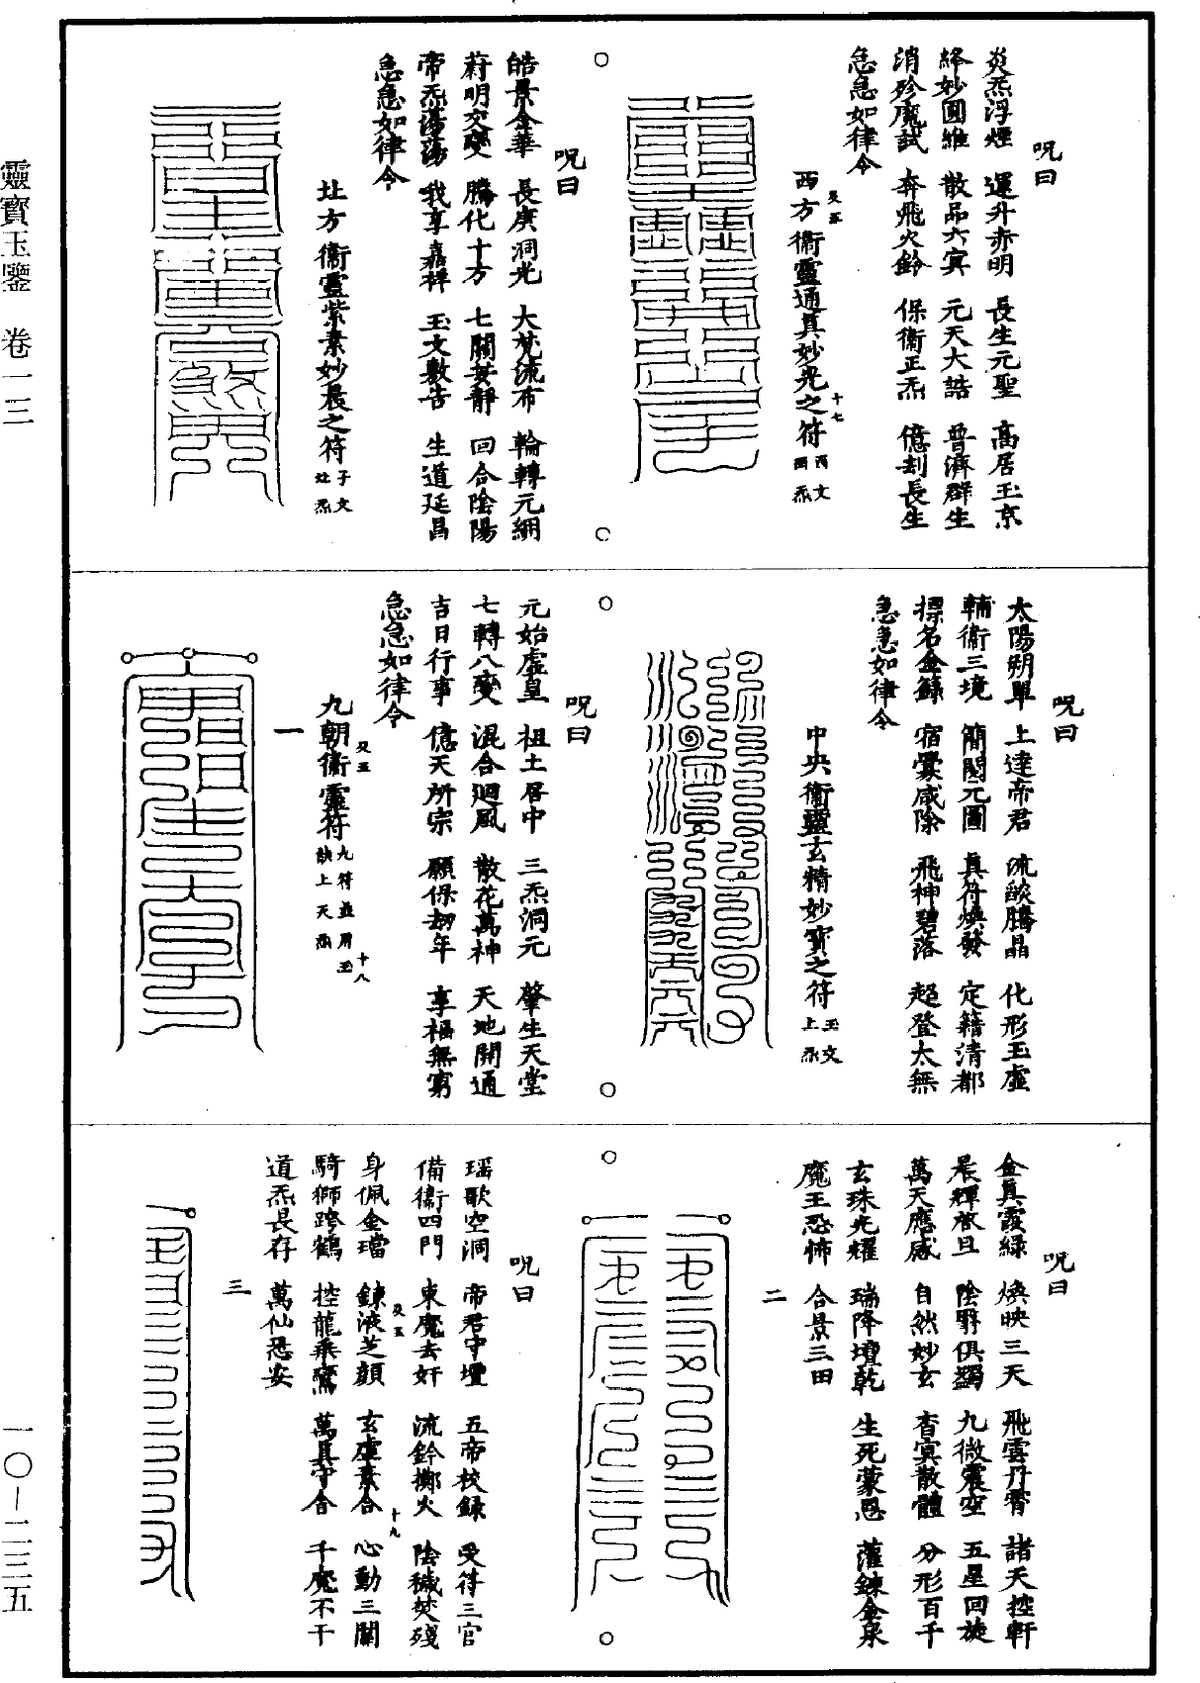 靈寶玉鑒 卷一三
一〇－二三五
呪曰
炎炁浮煙 運升赤明 長生元聖 高居玉京
絳妙圓維 散品六冥 元天大誥 普濟群生
消殄魔試 奔飛火鈴 保衛正炁 億刦長生
急急如律令
西方衛靈通真妙光之符 酉文西炁
癸五
十七
呪曰
皓景金華 長庚洞光 大梵流布 輪轉元綱
蔚明交變 騰化十方 七關安靜 回合陰陽
帝炁蕩蕩 我享嘉祥 玉文敷告 生道延昌
急急如律令
北方衛靈紫素妙晨之符 子文北炁
呪曰
太陽朔單 上達帝君 流燄騰晶 化形玉虛
輔衛三境 簡閱元圖 真符煥發 定籍清都
摽名金籙 宿釁咸除 飛神碧落 超登太無
急急如律令
中央衛靈玄精妙寶之符 玉文上炁
呪曰
元始虛皇 祖土居中 三炁洞元 肇生天堂
七轉八變 混合迴風 散花萬神 天地開通
吉日行事 億天所宗 願保劫年 享福無窮
急急如律令
九朝衛靈符 九符並用玉訣上天炁
癸五
十八
一
呪曰
金真霞綠 煥映三天 飛雲丹霄 諸天控軒
晨輝啟旦 陰翳俱蠲 九微震空 五星回旋
萬天應感 自然妙玄 杳冥散體 分形百千
玄珠光耀 瑞降壇乾 生死蒙恩 灌鍊金泉
魔王恐怖 合景三田
二
呪曰
瑶歌空洞 帝君守壇 五帝校錄 受符三官
備衛四門 東魔去奸 流鈴擲火 陰穢焚殘
身佩金璫 鍊液芝顏 玄虛素合 心動三關
癸五
十九
騎獅跨鶴 控龍乘鸞 萬真守合 千魔不干
道炁長存 萬仙悉安
三